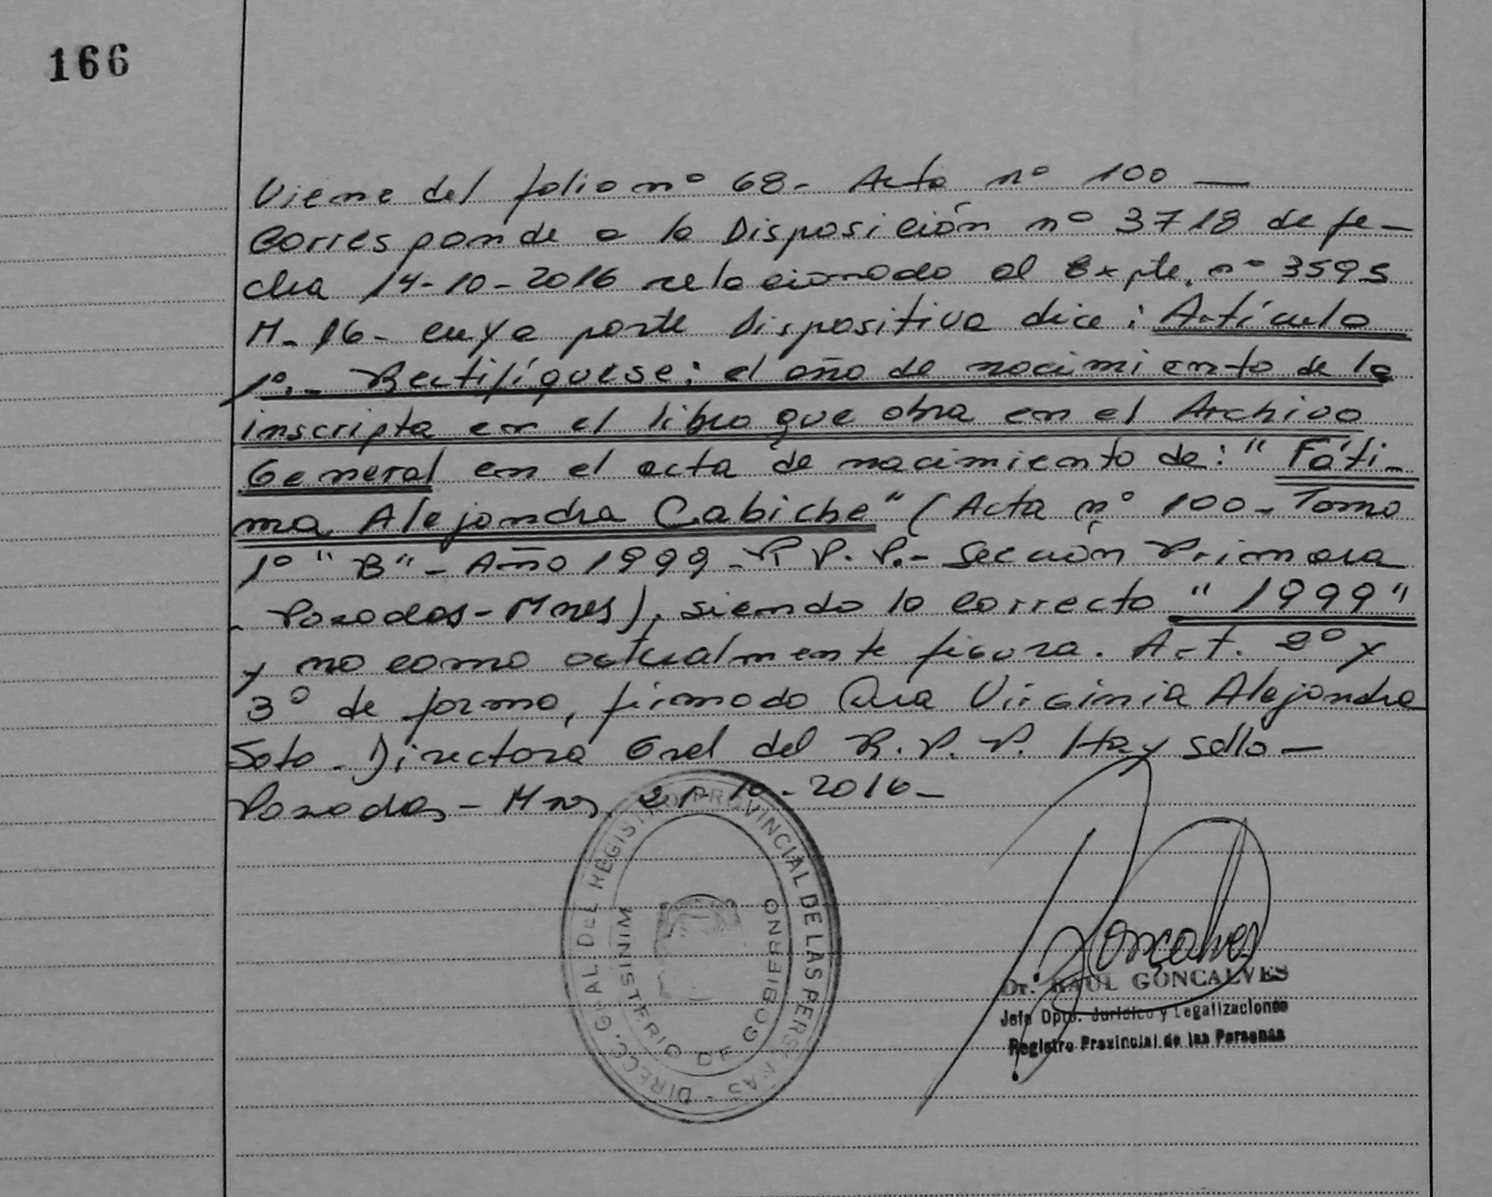 166
Viene del folio nº 68- Acta nº 100 —
Corresponde a la Disposición nº 3718 de fe-
cha 14-10-2016 relacionado al Expte. nº 3595
M-16- cuya parte dispositiva dice: Artículo
1º.- Rectifíquese: el año de nacimiento de la
inscripta en el libro que obra en el Archivo
General en el acta de nacimiento de: "Fáti-
ma Alejandra Cabiche" (Acta nº 100- Tomo
1º "B" - Año 1999 - R.P.P.- Sección Primera
- Posadas - Mnes), siendo lo correcto "1999"
y no como actualmente figura. Art. 2º y
3º de forma, firmado Virginia Alejandra
Soto - Directora Gral del R.P.P. Hay sello -
Posadas - Mnes, 21-10-2016-
DIRECC. GRAL DEL REGISTRO PROVINCIAL DE LAS PERSONAS
MINISTERIO DE GOBIERNO
Goncalves
Dr. RAUL GONCALVES
Jefe Dpto. Jurídico y Legalizaciones
Registro Provincial de las Personas